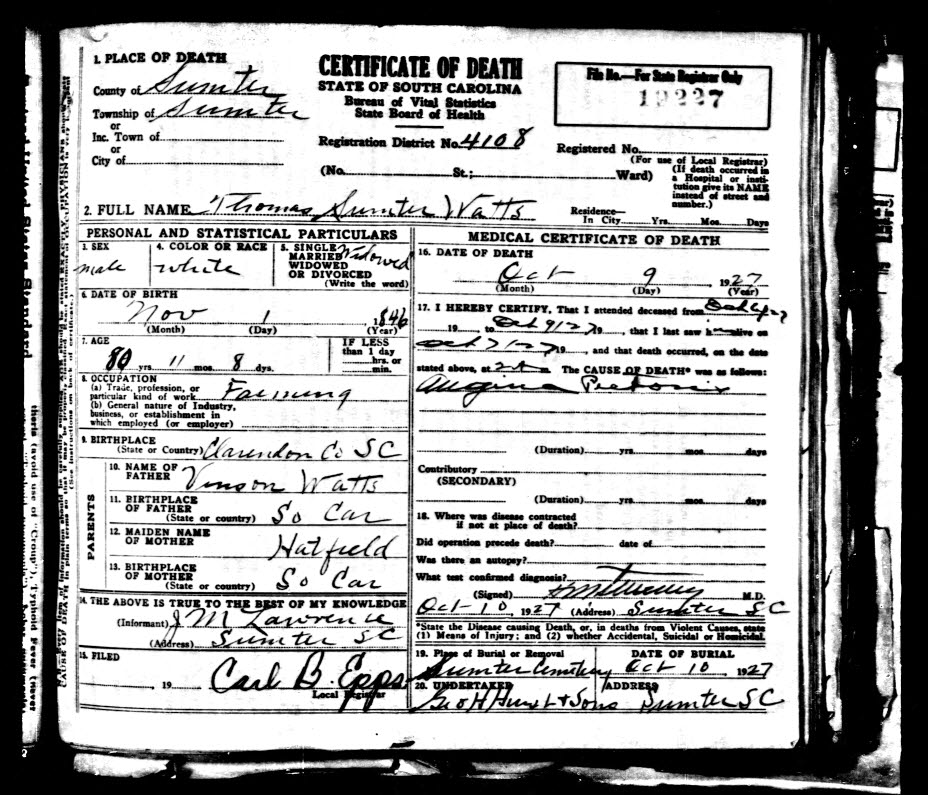 1. PLACE OF DEATH
County of Sumter
Township of Sumter
or
Inc. Town of
or
City of
CERTIFICATE OF DEATH
STATE OF SOUTH CAROLINA
Bureau of Vital Statistics
State Board of Health
Registration District No. 4108
(No. St.; Ward)
File No.—For State Registrar Only
19227
Registered No.
(For use of Local Registrar)
(If death occurred in
a Hospital or insti-
tution give its NAME
instead of street and
number.)
2. FULL NAME Thomas Sumter Watts
Residence—
In City Yrs. Mos. Days
PERSONAL AND STATISTICAL PARTICULARS
3. SEX
male
4. COLOR OR RACE
white
5. SINGLE
MARRIED
WIDOWED
OR DIVORCED
(Write the word)
Widowed
6. DATE OF BIRTH
Nov 1 1846
(Month) (Day) (Year)
7. AGE
80 yrs. 11 mos. 8 dys.
IF LESS
than 1 day
hrs. or
min.
8. OCCUPATION
(a) Trade, profession, or
particular kind of work Farming
(b) General nature of Industry,
business, or establishment in
which employed (or employer)
9. BIRTHPLACE
(State or Country) Clarendon Co SC
PARENTS
10. NAME OF
FATHER Vinson Watts
11. BIRTHPLACE
OF FATHER
(State or country) So Car
12. MAIDEN NAME
OF MOTHER
Hatfield
13. BIRTHPLACE
OF MOTHER
(State or country) So Car
14. THE ABOVE IS TRUE TO THE BEST OF MY KNOWLEDGE
(Informant) J M Lawrence
(Address) Sumter SC
15. FILED
19 Carl B. Epps
Local Registrar
MEDICAL CERTIFICATE OF DEATH
16. DATE OF DEATH
Oct 9 1927
(Month) (Day) (Year)
17. I HEREBY CERTIFY, That I attended deceased from
19 to Oct 9/27 19, that I last saw h alive on
Oct 7/27 19, and that death occurred, on the date
stated above, at The CAUSE OF DEATH* was as follows:
Angina Pectoris
(Duration) yrs. mos. days
Contributory
(SECONDARY)
(Duration) yrs. mos. days
18. Where was disease contracted
if not at place of death?
Did operation precede death? date of
Was there an autopsy?
What test confirmed diagnosis?
(Signed) M.D.
Oct 10, 1927 (Address) Sumter SC
*State the Disease causing Death, or, in deaths from Violent Causes, state
(1) Means of Injury; and (2) whether Accidental, Suicidal or Homicidal.
19. Place of Burial or Removal
Sumter Cemetery
DATE OF BURIAL
Oct 10 1927
20. UNDERTAKER
Geo H Hurst & Sons
ADDRESS
Sumter SC